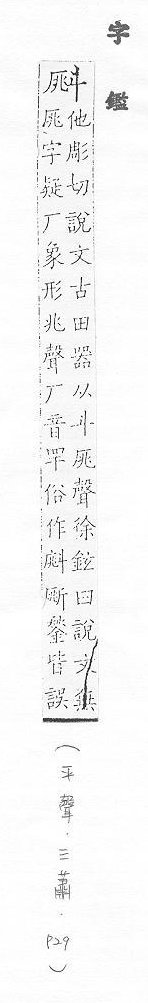 字鑑
他彫切說文古田器从斗聲徐鉉曰說文無
字疑厂象形兆聲厂音罕俗作皆誤
（平聲．三蕭．P29）